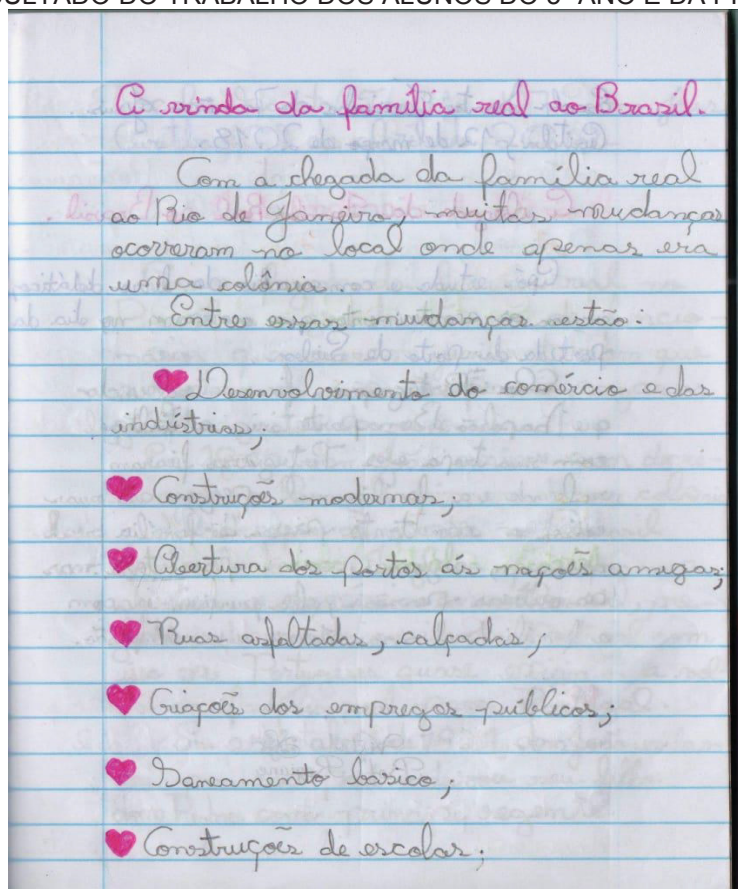 A vinda da família real ao Brasil.
Com a chegada da família real
ao Rio de Janeiro, muitas mudanças
ocorreram no local onde apenas era
uma colônia.
Entres essas mudanças estão:
Desenvolvimento do comércio e das
indústrias;
Construções modernas;
Abertura dos Portos ás nações amigas;
Ruas asfaltadas, calçadas;
Criações dos empregos públicos;
Saneamento basico;
Construções de escolas;